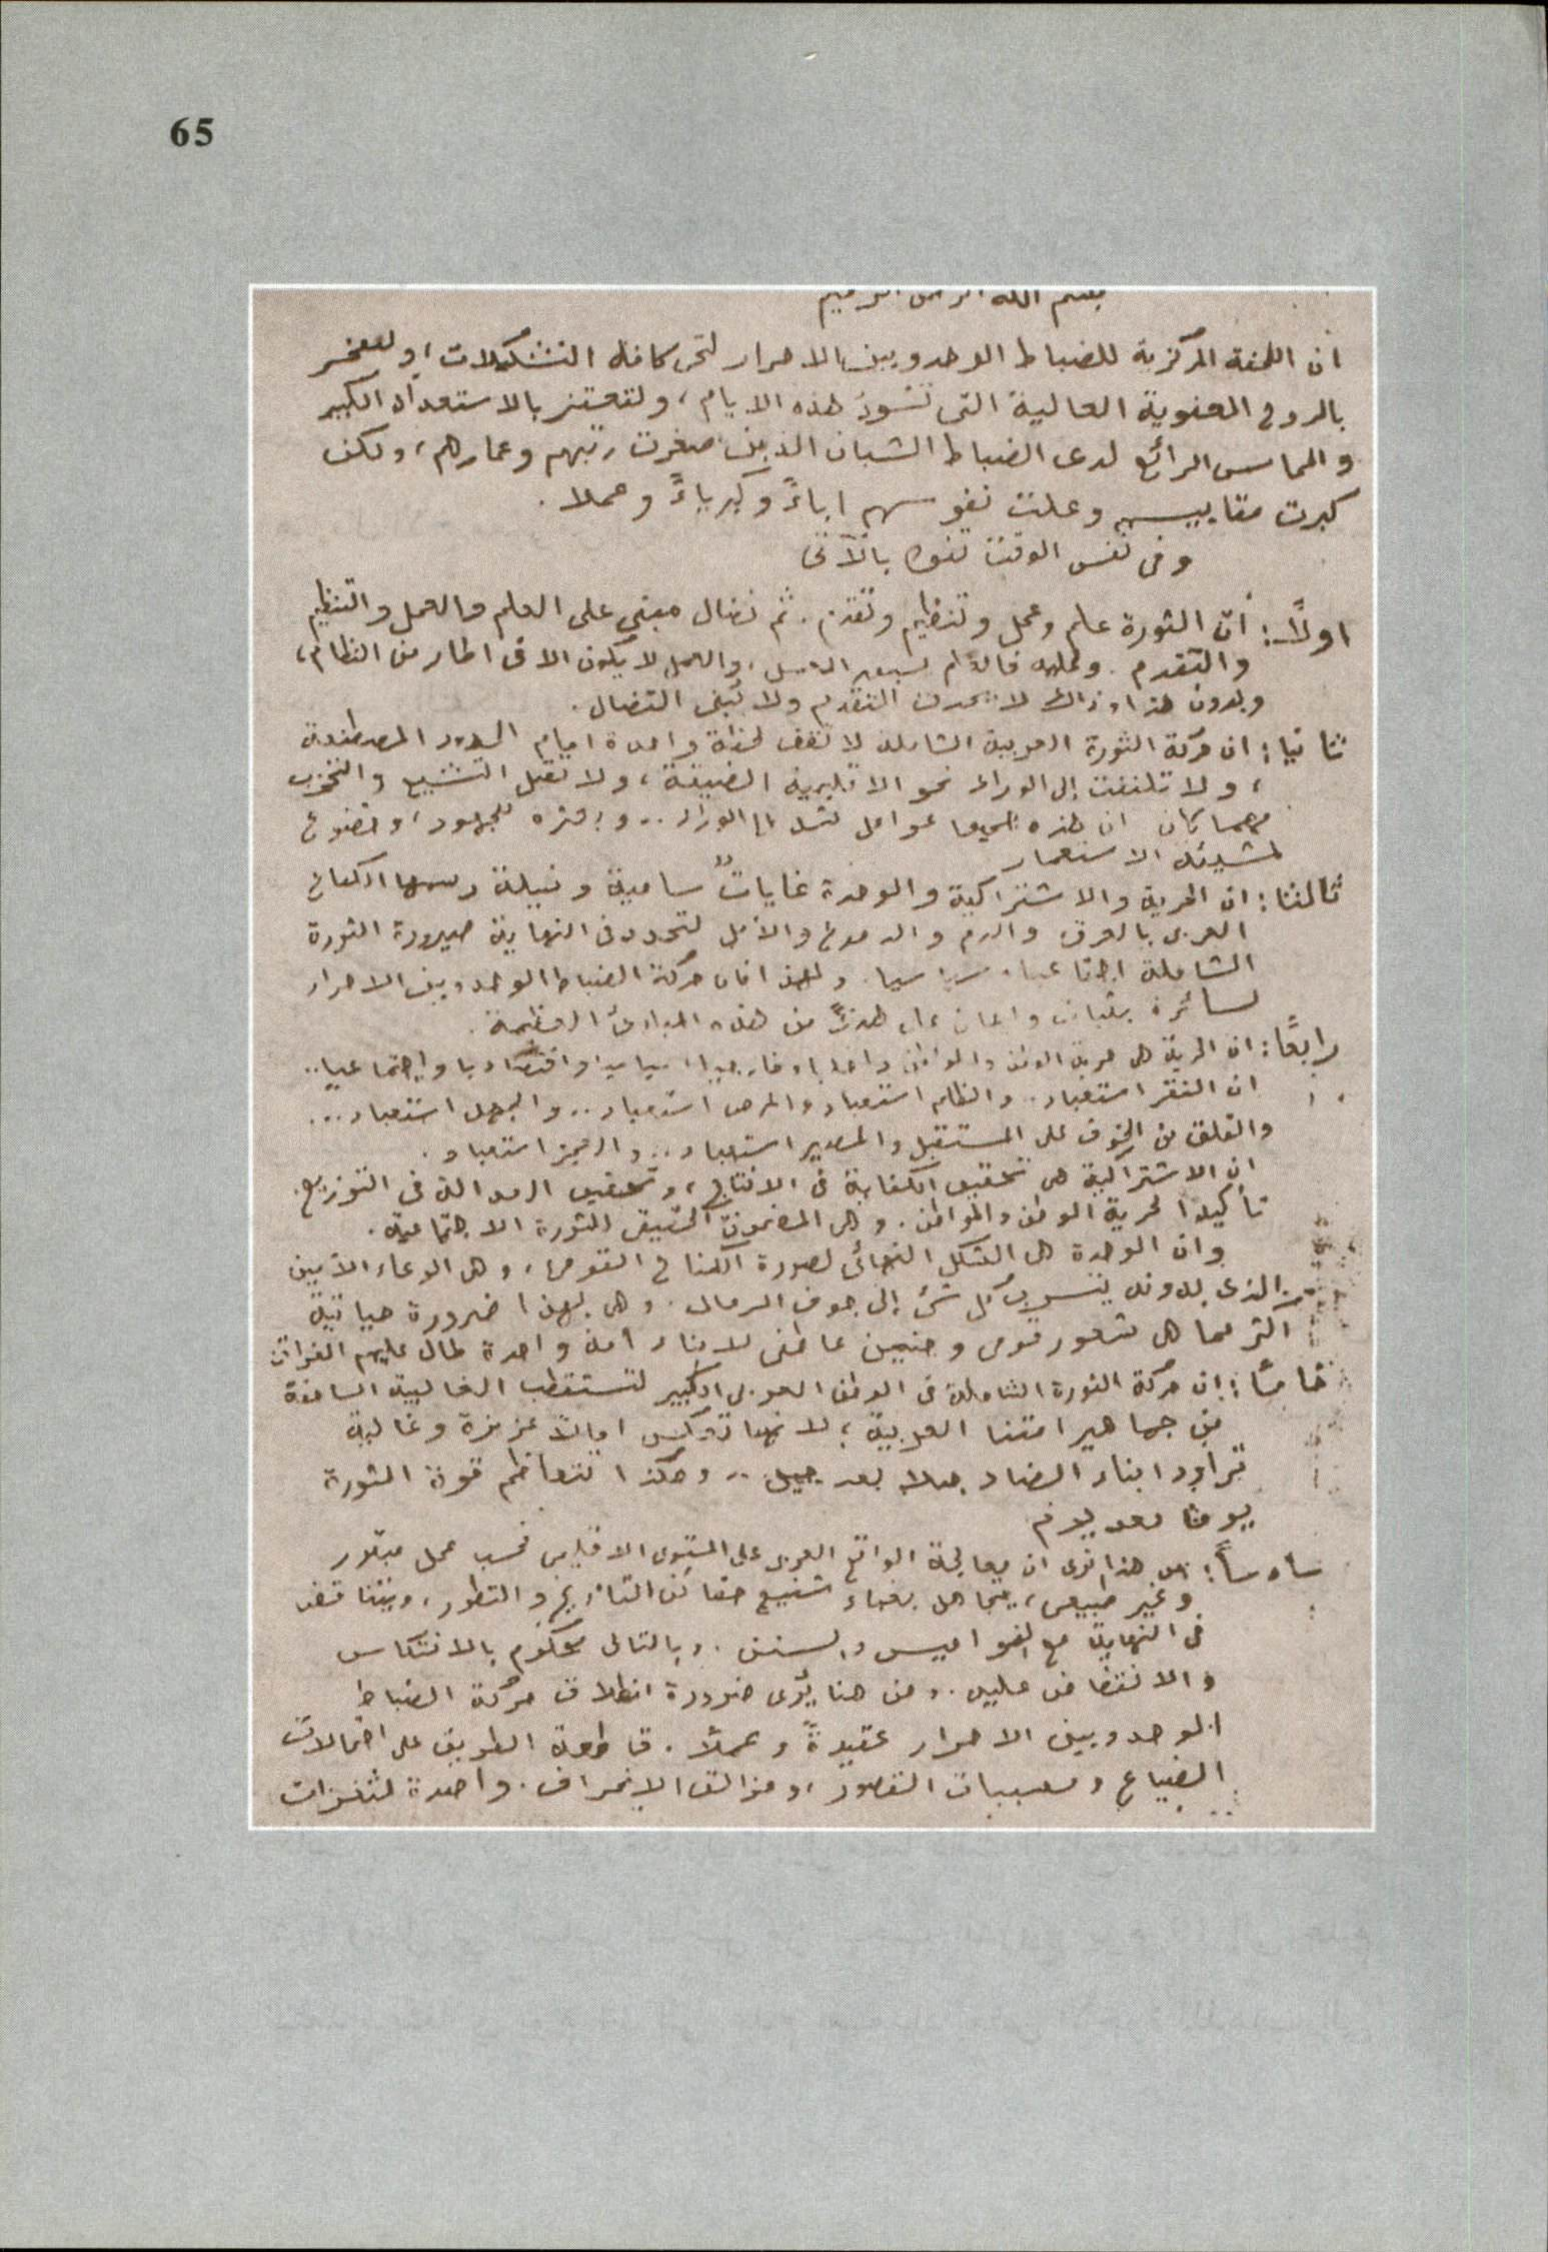 65
بسم الله الرحمن الرحيم
ان اللجنة المركزية للضباط الوحدويين الاحرار لتحى كافة التشكيلات، ولتفخر
بالروح المعنوية العالية التى تسود هذه الايام، ولتعتز بالاستعداد الكبير
والحماس الرائع لدى الضباط الشبان الذين صغرت رتبهم وعمارهم، ولكن
كبرت مقاييسهم وعلت نفوسهم اباءً وكبرياءً وعملا.
وفى نفس الوقت تنوه بالآتى
اولاً: أن الثورة علم وعمل وتنظيم وتقدم. ثم نضال مبنى على العلم والعمل والتنظيم
والتقدم. وعليه فالعلم يسبق العمل، والعمل لا يكون الا فى اطار من النظام،
وبدون هذا وذاك لا يحدث التقدم ولا يبقى النضال.
ثانيا: ان حركة الثورة العربية الشاملة لا تقف لحظة واحدة امام الحدود المصطنعة
، ولا تلتفت إلى الوراء نحو الاقليمية الضيقة، ولا تقبل التشيع والتحزب
مهما كان ان هذه جميعا عوامل تشد الى الوراء .. وبعثره للجهود، وخضوع
لمشيئة الاستعمار
ثالثا: ان الحرية والاشتراكية والوحدة غايات سامية ونبيلة رسمها الكفاح
العربى بالعرق والدم والدموع والأمل لتحدد فى النهاية صيرورة الثورة
الشاملة اجتماعيا سياسيا. ولهذا فان حركة الضباط الوحدويين الاحرار
لسائرة بثبات وايمان على هدىً من هذه المبادئ العظيمة.
رابعًا: ان الحرية هى حرية الوطن والمواطن داخليا وخارجيا، سياسيا واقتصاديا واجتماعيا..
ان الفقر استعباد.. والظلم استعباد والمرض استعباد.. والجهل استعباد...
والقلق من الخوف على المستقبل والمصير استعباد.. والعجز استعباد.
ان الاشتراكية هى تحقيق الكفاية فى الانتاج، وتحقيق العدالة فى التوزيع.
تأكيدا لحرية الوطن والمواطن. وهى المضمون الحقيقى للثورة الاجتماعية.
وان الوحدة هى الشكل النهائى لصورة الكفاح القومى، وهى الوعاء الأمين
الذى بدونه يتسرب كل شئ إلى جوف الرمال. وهى بهذا ضرورة حياتية
اكثر مما هى شعور قومى وحنين عاطفى لابناء أمة واحدة طال عليهم الفراق
خامسًا: ان حركة الثورة الشاملة فى الوطن العربى الكبير لتستقطب الغالبية الساحقة
من جماهير امتنا العربية، لانها تعكس امالا عزيزة وغالية
تراود ابناء الضاد جيلا بعد جيل .. وهكذا تتعاظم قوة الثورة
يوما بعد يوم
سادساً: من هذا نرى ان معالجة الواقع العربى على المستوى الاقليمى فحسب عمل مبتور
وغير طبيعى، يتجاهل بغباء شنيع حقائق التاريخ والتطور، ويتناقض
فى النهاية مع النواميس والسنن. وبالتالى محكوم بالانتكاس
والانتقاض عليه. ومن هنا يُرى ضرورة انطلاق حركة الضباط
الوحدويين الاحرار عقيدةً وعملاً. قاطعة الطريق على احتمالات
الضياع ومسببات القصور، ومزالق الانحراف. واضعة لثغرات